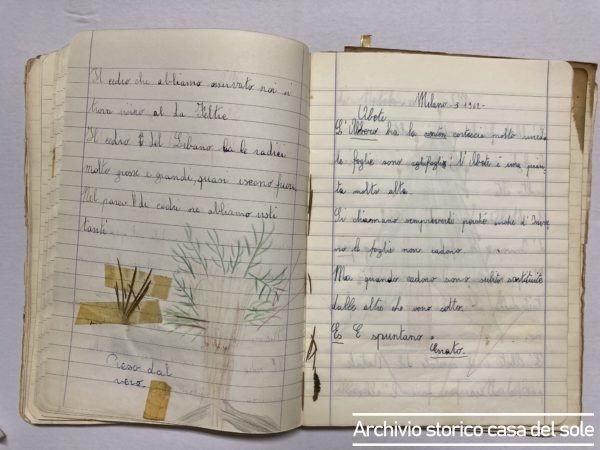 Il cedro che abbiamo osservato noi si
trova vicino al da Feltre
Il cedro del Libano ha le radici
molto grosse e grande, quasi escono fuori.
Nel parco di cedri ne abbiamo visti
tanti.
Preso dal
vero.
Milano 3
Abete
L'Albero ha la corteccia molto
le foglie sono aghifoglie: l'Abete è una pian-
ta molto alta.
Si chiamano sempreverdi perché anche d'Inver-
no le foglie non cadono.
Ma quando cadono sono subito sostituite
dalle altre che sono sotto.
Es E spuntano
Errato.
Archivio storico casa del sole